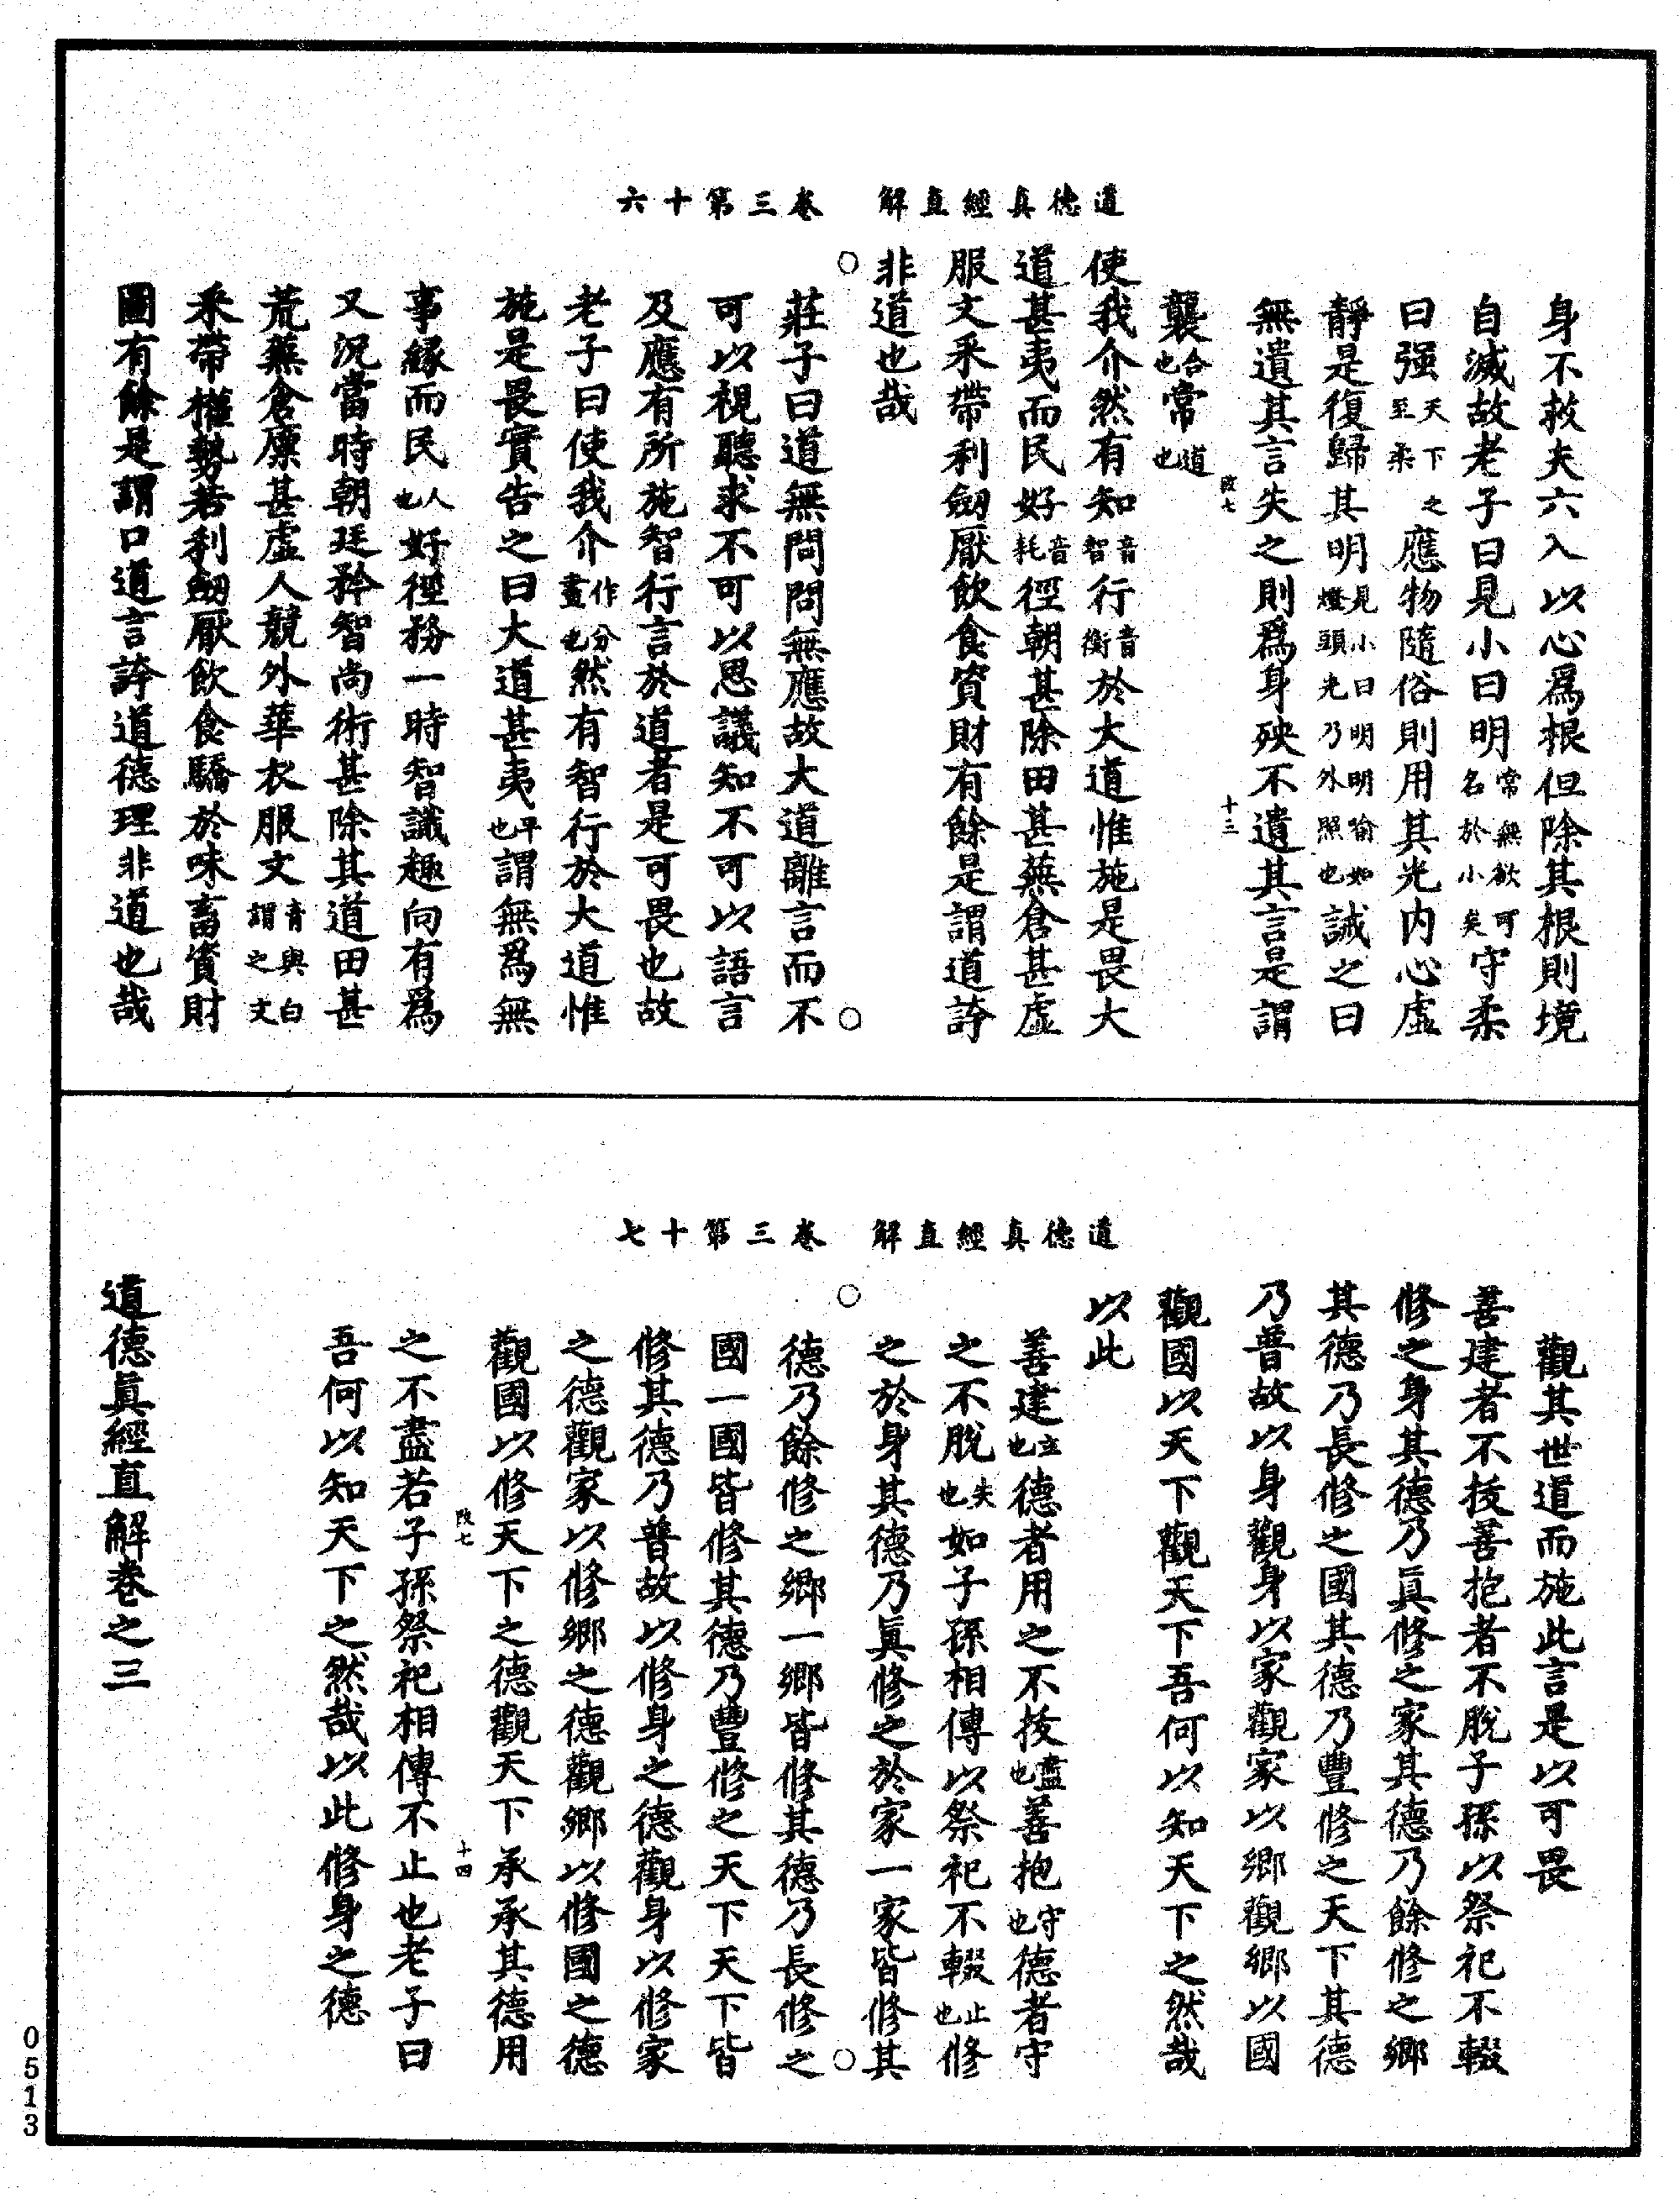 道德真經直解　卷三第十六
身不救夫六入以心爲根但除其根則境
自滅故老子曰見小曰明常無欲可名於小矣守柔
曰强天下之至柔應物隨俗則用其光内心虛
靜是復歸其明見小曰明明喻如燈頭光乃外照也誡之曰
無遺其言失之則爲身殃不遺其言是謂
改七　十三
襲合也常道也
使我介然有知音智行音衡於大道惟施是畏大
道甚夷而民好音耗徑朝甚除田甚蕪倉甚虛
服文釆帶利劒厭飲食資財有餘是謂道誇
非道也哉
莊子曰道無問問無應故大道離言而不
可以視聽求不可以思議知不可以語言
及應有所施智行言於道者是可畏也故
老子曰使我介作分畫也然有智行於大道惟
施是畏實告之曰大道甚夷平也謂無爲無
事緣而民人也好徑務一時智識趣向有爲
又況當時朝廷矜智尚術甚除其道田甚
荒蕪倉廪甚虛人競外華衣服文青與白謂之文
釆帶權勢若利劒厭飲食驕於味畜資財
圖有餘是謂口道言誇道德理非道也哉
道德真經直解　卷三第十七
觀其世道而施此言是以可畏
善建者不拔善抱者不脫子孫以祭祀不輟
修之身其德乃眞修之家其德乃餘修之鄉
其德乃長修之國其德乃豐修之天下其德
乃普故以身觀身以家觀家以鄉觀鄉以國
觀國以天下觀天下吾何以知天下之然哉
以此
善建立也德者用之不拔盡也善抱守也德者守
之不脫失也如子孫相傳以祭祀不輟止也修
之於身其德乃眞修之於家一家皆修其
德乃餘修之鄉一鄉皆修其德乃長修之
國一國皆修其德乃豐修之天下天下皆
修其德乃普故以修身之德觀身以修家
之德觀家以修鄉之德觀鄉以修國之德
觀國以修天下之德觀天下承承其德用
改七　十四
之不盡若子孫祭祀相傳不止也老子曰
吾何以知天下之然哉以此修身之德
道德眞經直解卷之三
0513